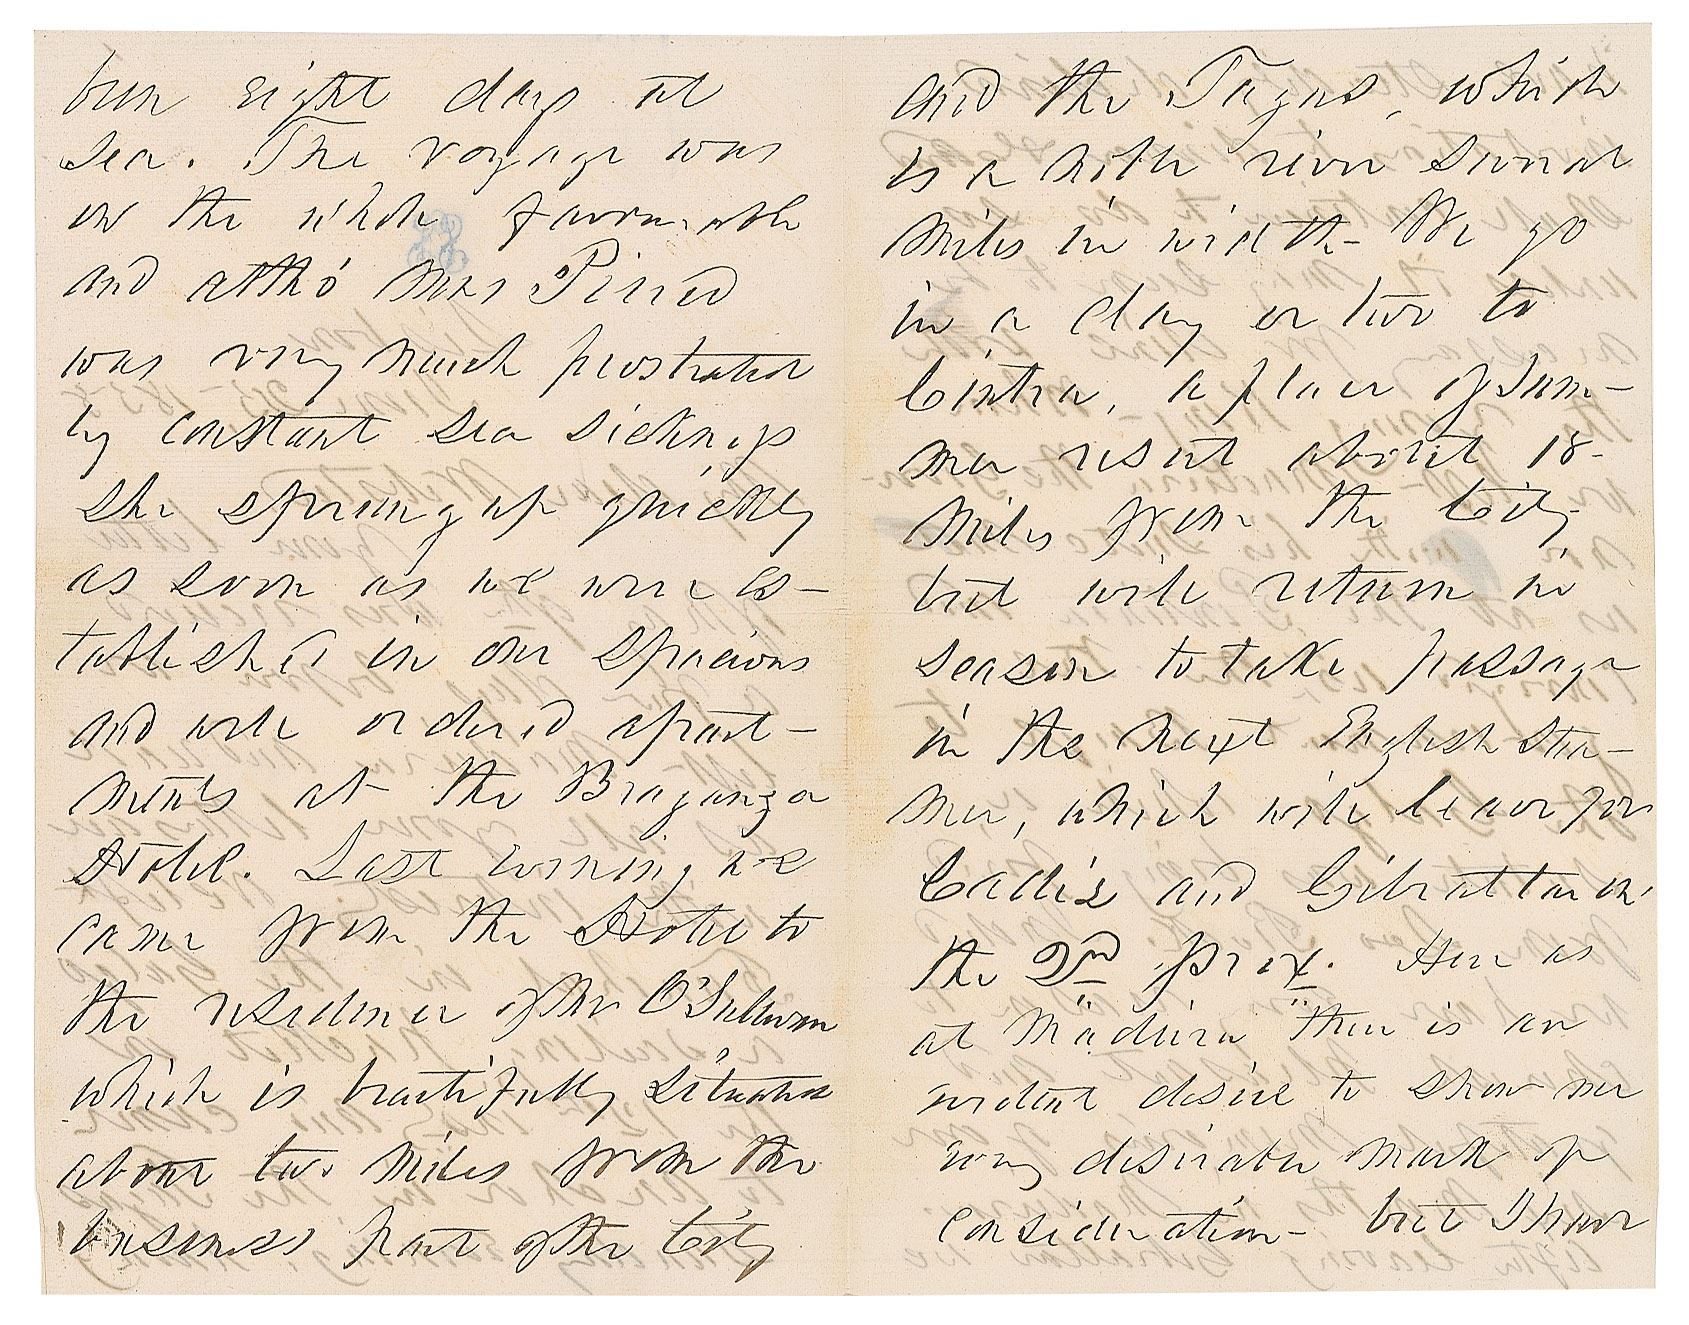 been eight days at
sea. The voyage was
on the whole favourable
and altho' Mrs Pierce
was very much prostrated
by constant sea sickness
she sprung up quickly
as soon as we were es-
tablished in our spacious
and well ordered apart-
ments at the Braganza
Hotel. Last evening we
came from the Hotel to
the residence of Mr O'Sullivan
which is beautifully situated
about two miles from the
business part of the City
and the Tagus, which
is a noble river several
miles in width - We go
in a day or two to
Cintra, a place of sum-
mer resort about 18-
miles from the City
but will return in
season to take passage
in the next English stea-
mer, which will leave for
Cadiz and Gibraltar on
the 2nd prox. Here as
at Madeira there is an
evident desire to show me
every desirable mark of
consideration - but I have